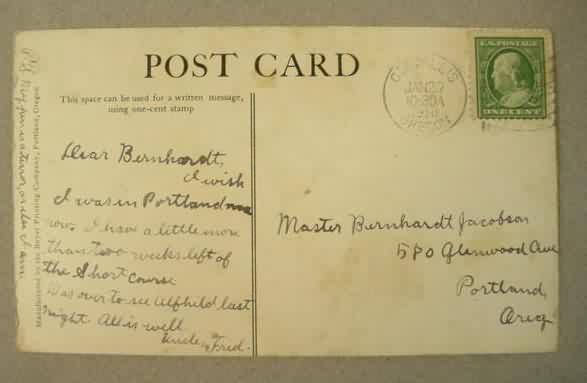 POST CARD
This space can be used for a written message,
using one-cent stamp
Dear Bernhardt,
I wish
I was in Portland
now. I have a little more
than two weeks left of
the Short Course
Was over to see Alfhild last
night. All is well
Uncle Fred.
Master Bernhardt Jacobson
580 Glenwood Ave
Portland,
Oreg
CORVALLIS
JAN
10-30A
OREGON
U.S. POSTAGE
ONE CENT
Manufactured by the Royal Printing Company, Portland, Oregon